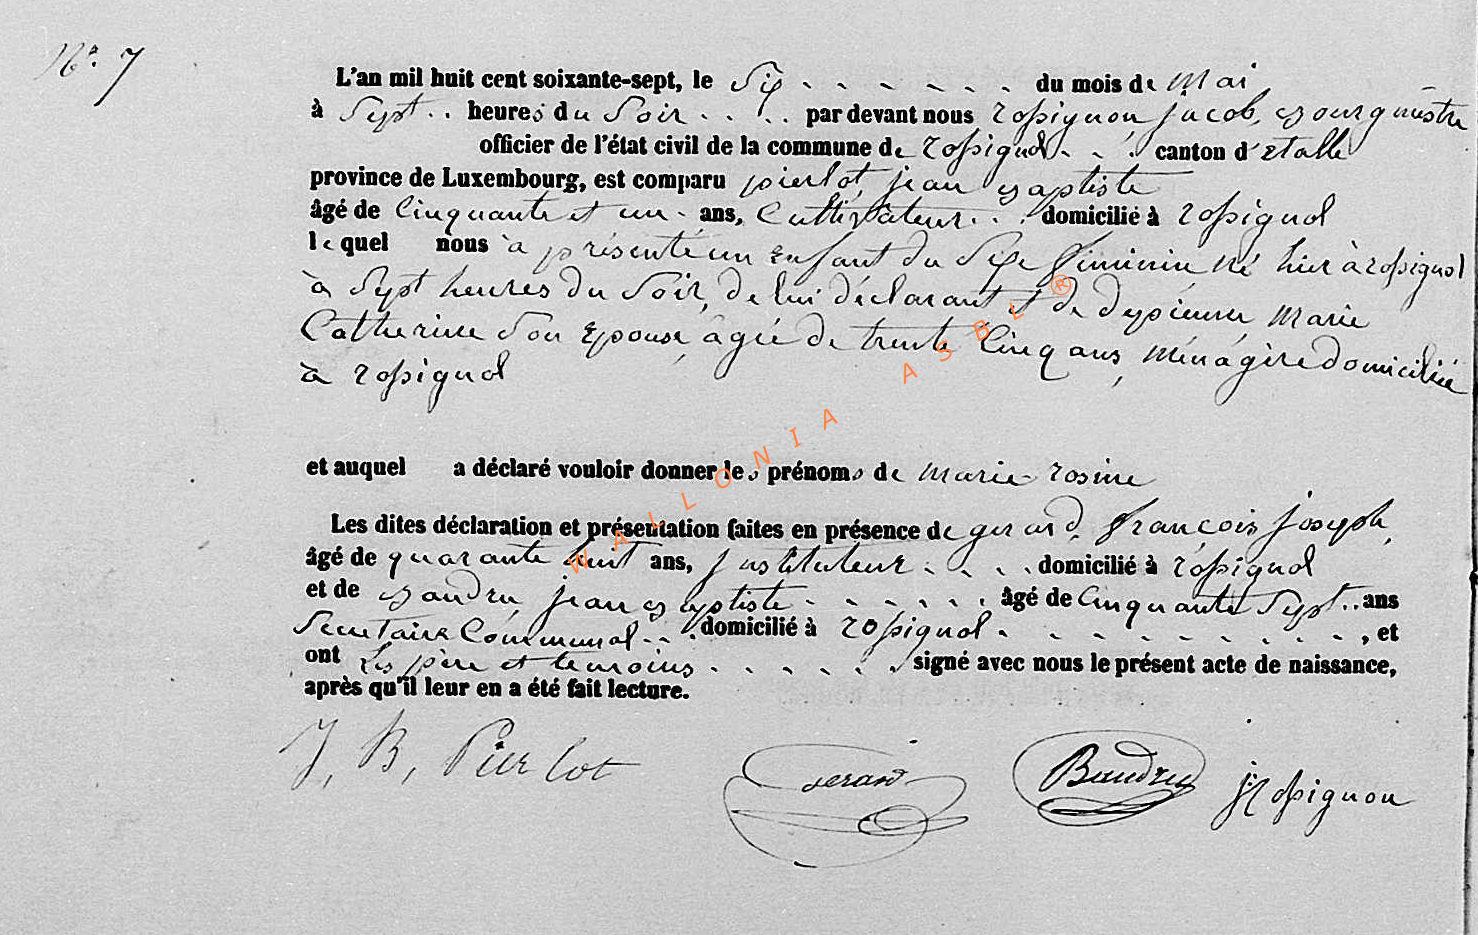 N° 7
L'an mil huit cent soixante-sept, le Six du mois de Mai
à Sept heures du Soir par devant nous rossignon, jacob, bourgmestre
officier de l'état civil de la commune de rossignol canton d'étalle
province de Luxembourg, est comparu pierlot, jean baptiste
âgé de Cinquante et un ans, Cultivateur domicilié à rossignol
lequel nous a présenté un Enfant du Sexe féminin né hier à rossignol
à Sept heures du Soir, de lui déclarant et de depienne Marie
Catherine Son Epouse, âgée de trente Cinq ans, ménagère domiciliée
à rossignol
et auquel a déclaré vouloir donner les prénoms de Marie rosine
Les dites déclaration et présentation faites en présence de gerard, françois joseph,
âgé de quarante huit ans, Instituteur domicilié à rossignol
et de baudru, jean baptiste âgé de Cinquante Sept ans
Secretaire Communal domicilié à rossignol, et
ont Les père et temoins signé avec nous le présent acte de naissance,
après qu'il leur en a été fait lecture.
J. B. Pierlot Gerard Baudru j Rossignon
WALLONIA ASBL ®